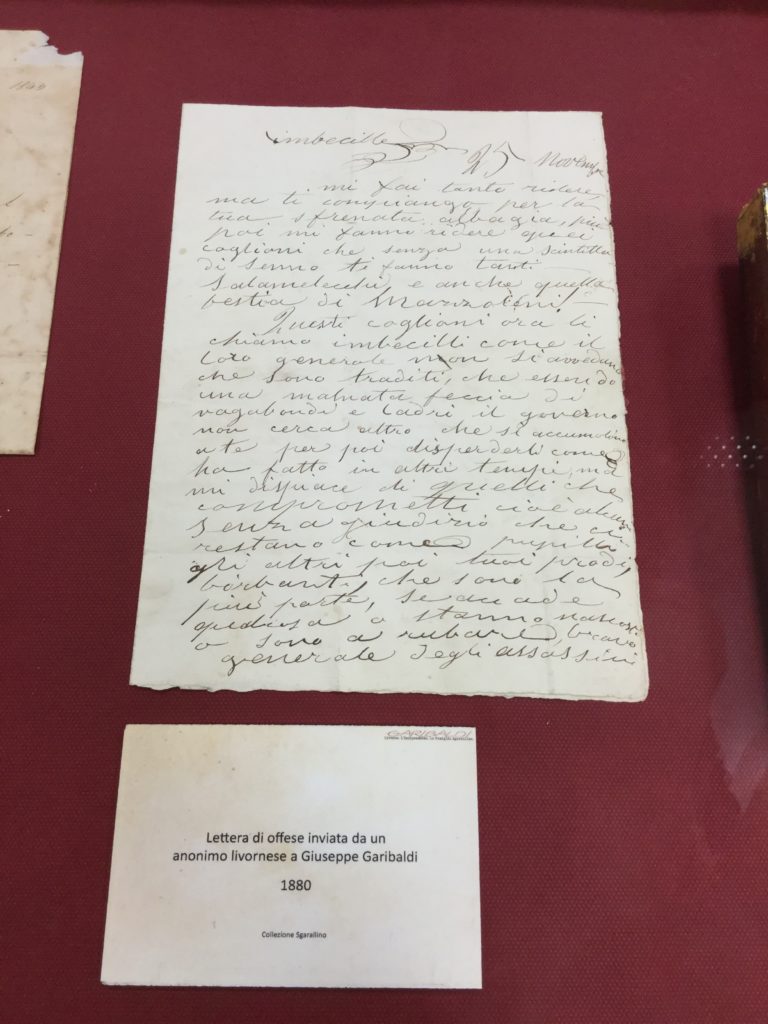 1843
imbecille
25 Novembre
mi fai tanto ridere,
ma ti compiango per la
tua sfrenata albagia, più
poi mi fanno ridere quei
coglioni che senza una scintilla
di senno ti fanno tanti
salamelecchi, e anche quella
bestia di
Questi coglioni ora li
chiamo imbecilli come il
loro generale non si avvedano
che sono traditi, che essendo
una malnata feccia di
vagabondi e ladri il governo
non cerca altro che si accumolino
a te per poi disperderli come
ha fatto in altri tempi, ma
mi dispiace di quelli che
comprometti cioè alcuni
senza giudizio che ci
restano come pupilli
gli altri poi tuoi prodi,
birbanti, che sono la
più parte, se accade
qualcosa o stanno nascosti
o sono a rubare, bravo
generale degli assassini
GARIBALDI
Lettera di offese inviata da un
anonimo livornese a Giuseppe Garibaldi
1880
Collezione Sgarallino